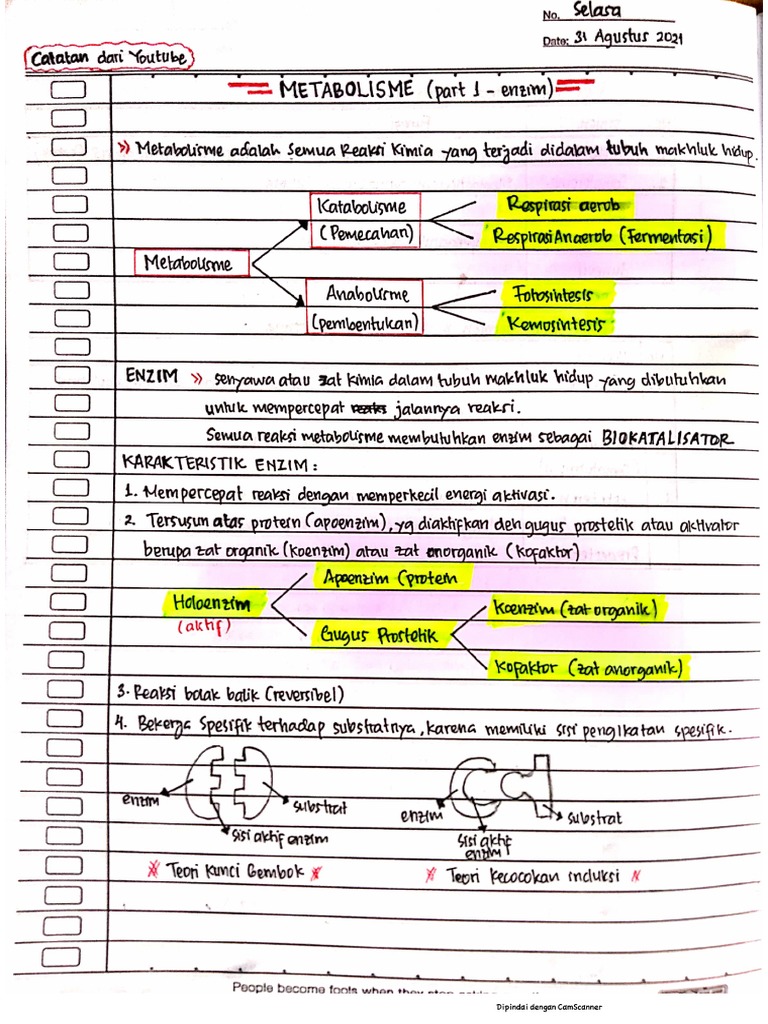 No. Selasa
Date: 31 Agustus 2021
Catatan dari Youtube
METABOLISME (part 1 - enzim)
» Metabolisme adalah semua Reaksi Kimia yang terjadi didalam tubuh makhluk hidup.
Katabolisme
(Pemecahan)
Respirasi aerob
Respirasi Anaerob (Fermentasi)
Metabolisme
Anabolisme
(pembentukan)
Fotosintesis
Kemosintesis
ENZIM » senyawa atau zat kimia dalam tubuh makhluk hidup yang dibutuhkan
untuk mempercepat jalannya reaksi.
Semua reaksi metabolisme membutuhkan enzim sebagai BIOKATALISATOR
KARAKTERISTIK ENZIM :
1. Mempercepat reaksi dengan memperkecil energi aktivasi.
2. Tersusun atas protein (apoenzim), yg diaktifkan oleh gugus prostetik atau aktivator
berupa zat organik (koenzim) atau zat anorganik (kofaktor)
Apoenzim (protein
Holoenzim
(aktif)
Gugus Prostetik
Koenzim (zat organik)
Kofaktor (zat anorganik)
3. Reaksi bolak balik (reversibel)
4. Bekerja spesifik terhadap substratnya, karena memiliki sisi pengikatan spesifik.
enzim
substrat
sisi aktif enzim
enzim
sisi aktif
enzim
substrat
Teori Kunci Gembok
Teori Kecocokan induksi
People become fools when they stop
Dipindai dengan CamScanner